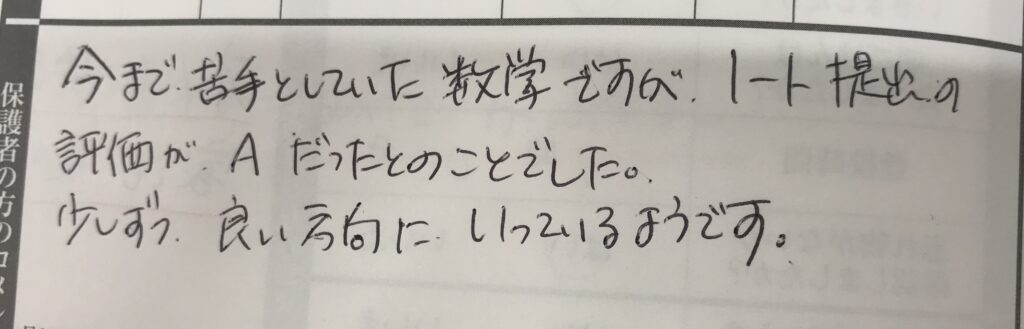 今まで苦手としていた数学ですが、ノート提出の
評価が、Aだったとのことでした。
少しずつ、良い方向に、いっているようです。
保護者の方のコメン